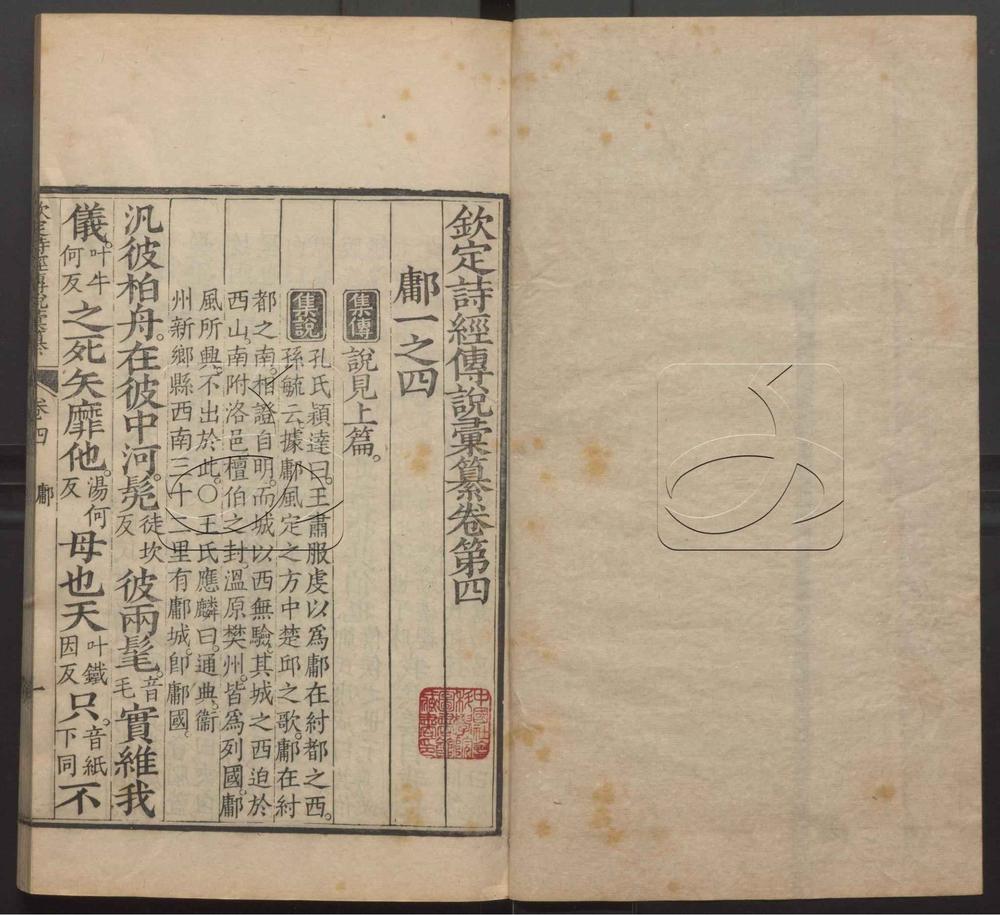 欽定詩經傳說彙纂卷第四
鄘一之四
集傳 說見上篇。
集說 孔氏穎達曰。王肅服虔以爲鄘在紂都之西。
孫毓云。據鄘風定之方中楚邱之歌。鄘在紂
都之南。相證自明。而城以西無驗。其城之西迫於
西山。南附洛邑。檀伯之封。溫原樊州。皆爲列國。鄘
風所興。不出於此。○王氏應麟曰。通典。衞
州新鄉縣西南三十二里有鄘城。卽鄘國。
汎彼柏舟。在彼中河。髧徒坎反彼兩髦。音毛實維我
儀。叶牛何反之死矢靡他。湯何反母也天叶鐵因反只。音紙下同不
欽定詩經傳說彙纂 卷四 鄘 一
中國社會科學院圖書館藏書印